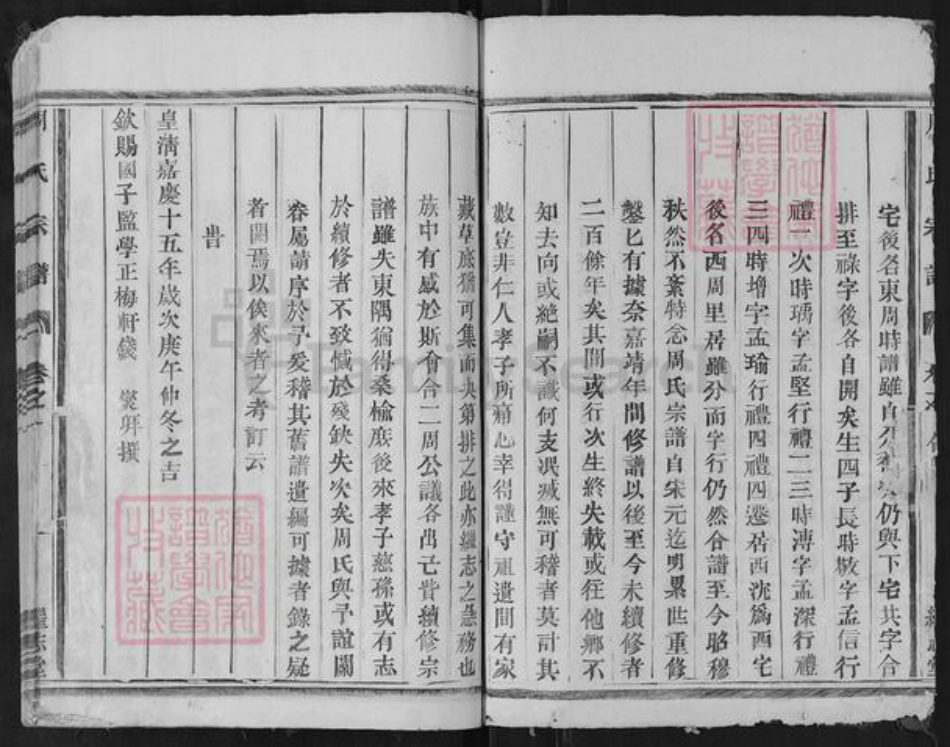 宅後各東周時譜雖自 仍與下宅共字合
排至祿字後各自開矣生四子長時 字孟信行
禮一次時瑀字孟堅行禮二三時溥字孟深行禮
三四時增字孟瑜行禮四禮四遷居西沈爲西宅
後名西周里居雖分而字行仍然合譜至今昭穆
秩然不紊特念周氏宗譜自宋元迄明累世重修
鑿匕有據奈嘉靖年間修譜以後至今未續修者
二百餘年矣其間或行次生終失載或往他鄉不
知去向或絶嗣不識何支泯滅無可稽者莫計其
數豈非仁人孝子所痛心幸得謹守祖遺間有家
藏草底猶可集而夬第排之此亦繼志之急務也
族中有感於斯會合二周公議各出己貲續修宗
譜雖失東隅猶得桑榆庶後來孝子慈孫或有志
於續修者不致憾於殘缺失次矣周氏與予誼關
眷属請序於予爰稽其舊譜遺編可據者錄之疑
者闕焉以俟來者之考訂云
旹
皇淸嘉慶十五年歲次庚午仲冬之吉
欽賜國子監學正梅軒錢 燮 撰
周氏宗譜
卷之
繼志堂